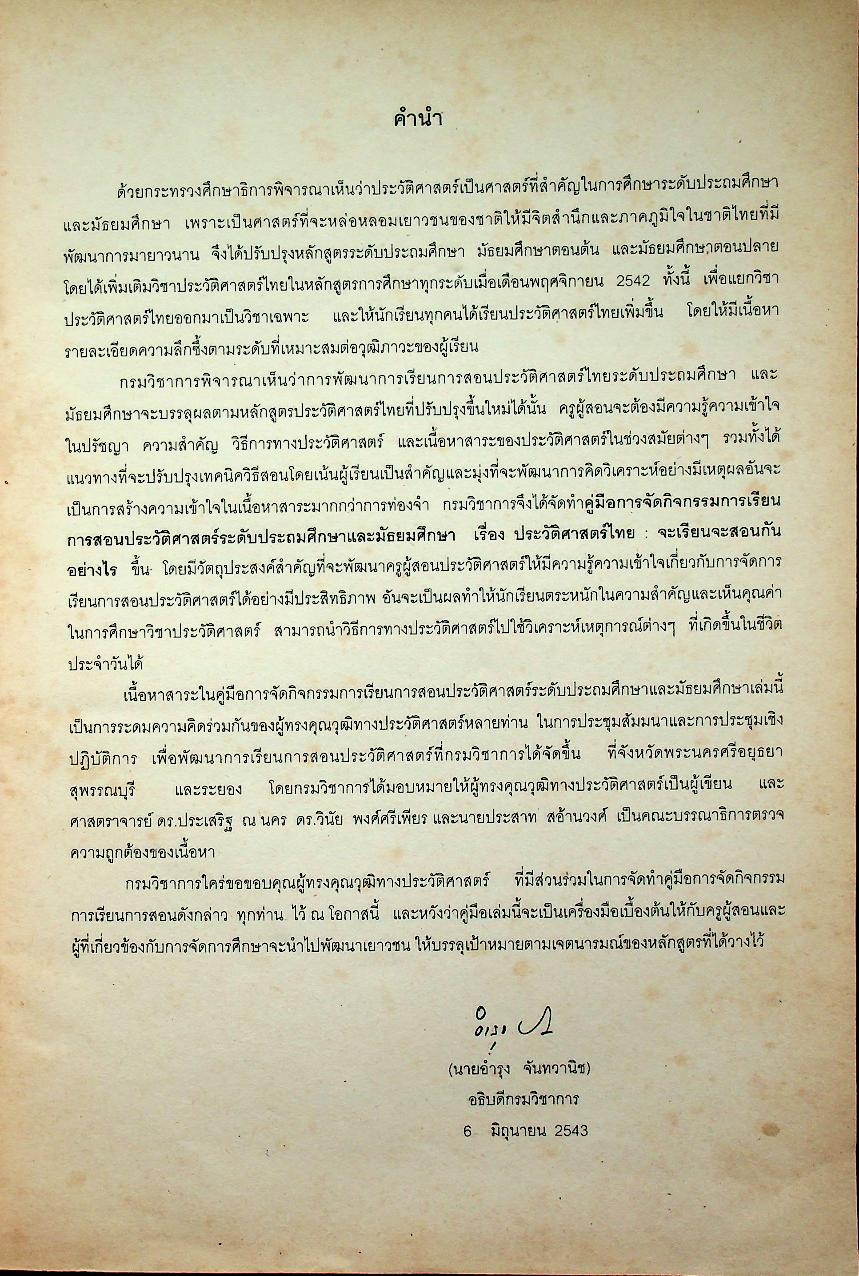 คำนำ
ด้วยกระทรวงศึกษาธิการพิจารณาเห็นว่าประวัติศาสตร์เป็นศาสตร์ที่สำคัญในการศึกษาระดับประถมศึกษา
และมัธยมศึกษา เพราะเป็นศาสตร์ที่จะหล่อหลอมเยาวชนของชาติให้มีจิตสำนึกและภาคภูมิใจในชาติไทยที่มี
พัฒนาการมายาวนาน จึงได้ปรับปรุงหลักสูตรระดับประถมศึกษา มัธยมศึกษาตอนต้น และมัธยมศึกษาตอนปลาย
โดยได้เพิ่มเติมวิชาประวัติศาสตร์ไทยในหลักสูตรการศึกษาทุกระดับเมื่อเดือนพฤศจิกายน 2542 ทั้งนี้ เพื่อแยกวิชา
ประวัติศาสตร์ไทยออกมาเป็นวิชาเฉพาะ และให้นักเรียนทุกคนได้เรียนประวัติศาสตร์ไทยเพิ่มขึ้น โดยให้มีเนื้อหา
รายละเอียดความลึกซึ้งตามระดับที่เหมาะสมต่อวุฒิภาวะของผู้เรียน
กรมวิชาการพิจารณาเห็นว่าการพัฒนาการเรียนการสอนประวัติศาสตร์ไทยระดับประถมศึกษา และ
มัธยมศึกษาจะบรรลุผลตามหลักสูตรประวัติศาสตร์ไทยที่ปรับปรุงขึ้นใหม่ได้นั้น ครูผู้สอนจะต้องมีความรู้ความเข้าใจ
ในปรัชญา ความสำคัญ วิธีการทางประวัติศาสตร์ และเนื้อหาสาระของประวัติศาสตร์ในช่วงสมัยต่างๆ รวมทั้งได้
แนวทางที่จะปรับปรุงเทคนิควิธีสอนโดยเน้นผู้เรียนเป็นสำคัญและมุ่งที่จะพัฒนาการคิดวิเคราะห์อย่างมีเหตุผลอันจะ
เป็นการสร้างความเข้าใจในเนื้อหาสาระมากกว่าการท่องจำ กรมวิชาการจึงได้จัดทำคู่มือการจัดกิจกรรมการเรียน
การสอนประวัติศาสตร์ระดับประถมศึกษาและมัธยมศึกษา เรื่อง ประวัติศาสตร์ไทย : จะเรียนจะสอนกัน
อย่างไร ขึ้น โดยมีวัตถุประสงค์สำคัญที่จะพัฒนาครูผู้สอนประวัติศาสตร์ให้มีความรู้ความเข้าใจเกี่ยวกับการจัดการ
เรียนการสอนประวัติศาสตร์ได้อย่างมีประสิทธิภาพ อันจะเป็นผลทำให้นักเรียนตระหนักในความสำคัญและเห็นคุณค่า
ในการศึกษาวิชาประวัติศาสตร์ สามารถนำวิธีการทางประวัติศาสตร์ไปใช้วิเคราะห์เหตุการณ์ต่างๆ ที่เกิดขึ้นในชีวิต
ประจำวันได้
เนื้อหาสาระในคู่มือการจัดกิจกรรมการเรียนการสอนประวัติศาสตร์ระดับประถมศึกษาและมัธยมศึกษาเล่มนี้
เป็นการระดมความคิดร่วมกันของผู้ทรงคุณวุฒิทางประวัติศาสตร์หลายท่าน ในการประชุมสัมมนาและการประชุมเชิง
ปฏิบัติการ เพื่อพัฒนาการเรียนการสอนประวัติศาสตร์ที่กรมวิชาการได้จัดขึ้น ที่จังหวัดพระนครศรีอยุธยา
สุพรรณบุรี และระยอง โดยกรมวิชาการได้มอบหมายให้ผู้ทรงคุณวุฒิทางประวัติศาสตร์เป็นผู้เขียน และ
ศาสตราจารย์ ดร.ประเสริฐ ณ นคร ดร.วินัย พงศ์ศรีเพียร และนายประสาท สอ้านวงศ์ เป็นคณะบรรณาธิการตรวจ
ความถูกต้องของเนื้อหา
กรมวิชาการใคร่ขอขอบคุณผู้ทรงคุณวุฒิทางประวัติศาสตร์ ที่มีส่วนร่วมในการจัดทำคู่มือการจัดกิจกรรม
การเรียนการสอนดังกล่าว ทุกท่าน ไว้ ณ โอกาสนี้ และหวังว่าคู่มือเล่มนี้จะเป็นเครื่องมือเบื้องต้นให้กับครูผู้สอนและ
ผู้ที่เกี่ยวข้องกับการจัดการศึกษาจะนำไปพัฒนาเยาวชน ให้บรรลุเป้าหมายตามเจตนารมณ์ของหลักสูตรที่ได้วางไว้
(นายอำรุง จันทวานิช)
อธิบดีกรมวิชาการ
6 มิถุนายน 2543